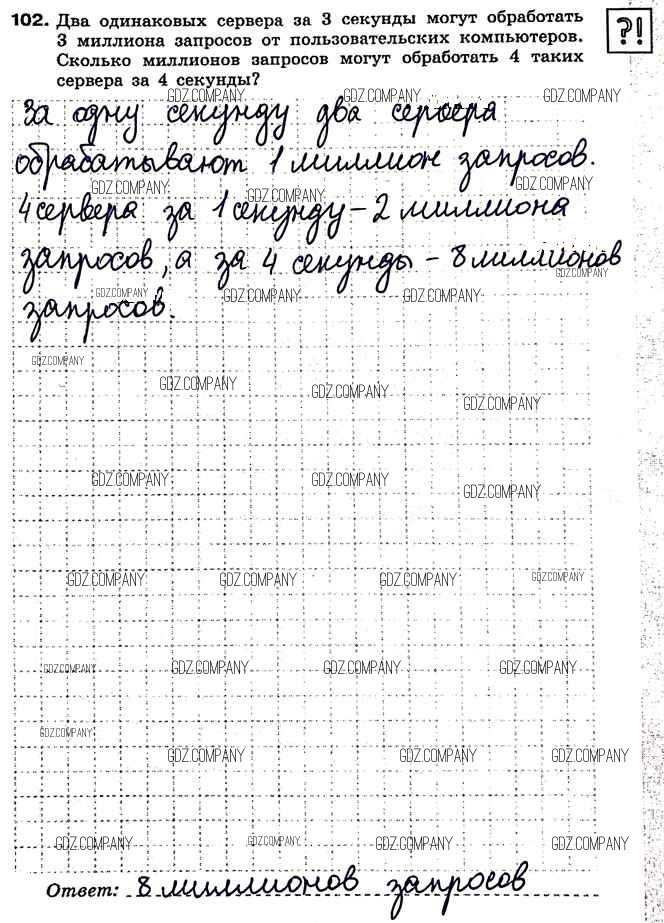 102. Два одинаковых сервера за 3 секунды могут обработать
3 миллиона запросов от пользовательских компьютеров.
Сколько миллионов запросов могут обработать 4 таких
сервера за 4 секунды?
?!
GDZ.COMPANY GDZ.COMPANY GDZ.COMPANY
За одну секунду два сервера
обрабатывают 1 миллион запросов.
GDZ.COMPANY GDZ.COMPANY GDZ.COMPANY
4 сервера за 1 секунду – 2 миллиона
запросов, а за 4 секунды – 8 миллионов
GDZ.COMPANY
GDZ.COMPANY GDZ.COMPANY GDZ.COMPANY
запросов.
GDZ.COMPANY
GDZ.COMPANY GDZ.COMPANY GDZ.COMPANY
GDZ.COMPANY GDZ.COMPANY GDZ.COMPANY
GDZ.COMPANY GDZ.COMPANY GDZ.COMPANY GDZ.COMPANY
GDZ.COMPANY GDZ.COMPANY GDZ.COMPANY GDZ.COMPANY
GDZ.COMPANY
GDZ.COMPANY GDZ.COMPANY GDZ.COMPANY
GDZ.COMPANY GDZ.COMPANY GDZ.COMPANY GDZ.COMPANY
Ответ: 8 миллионов запросов